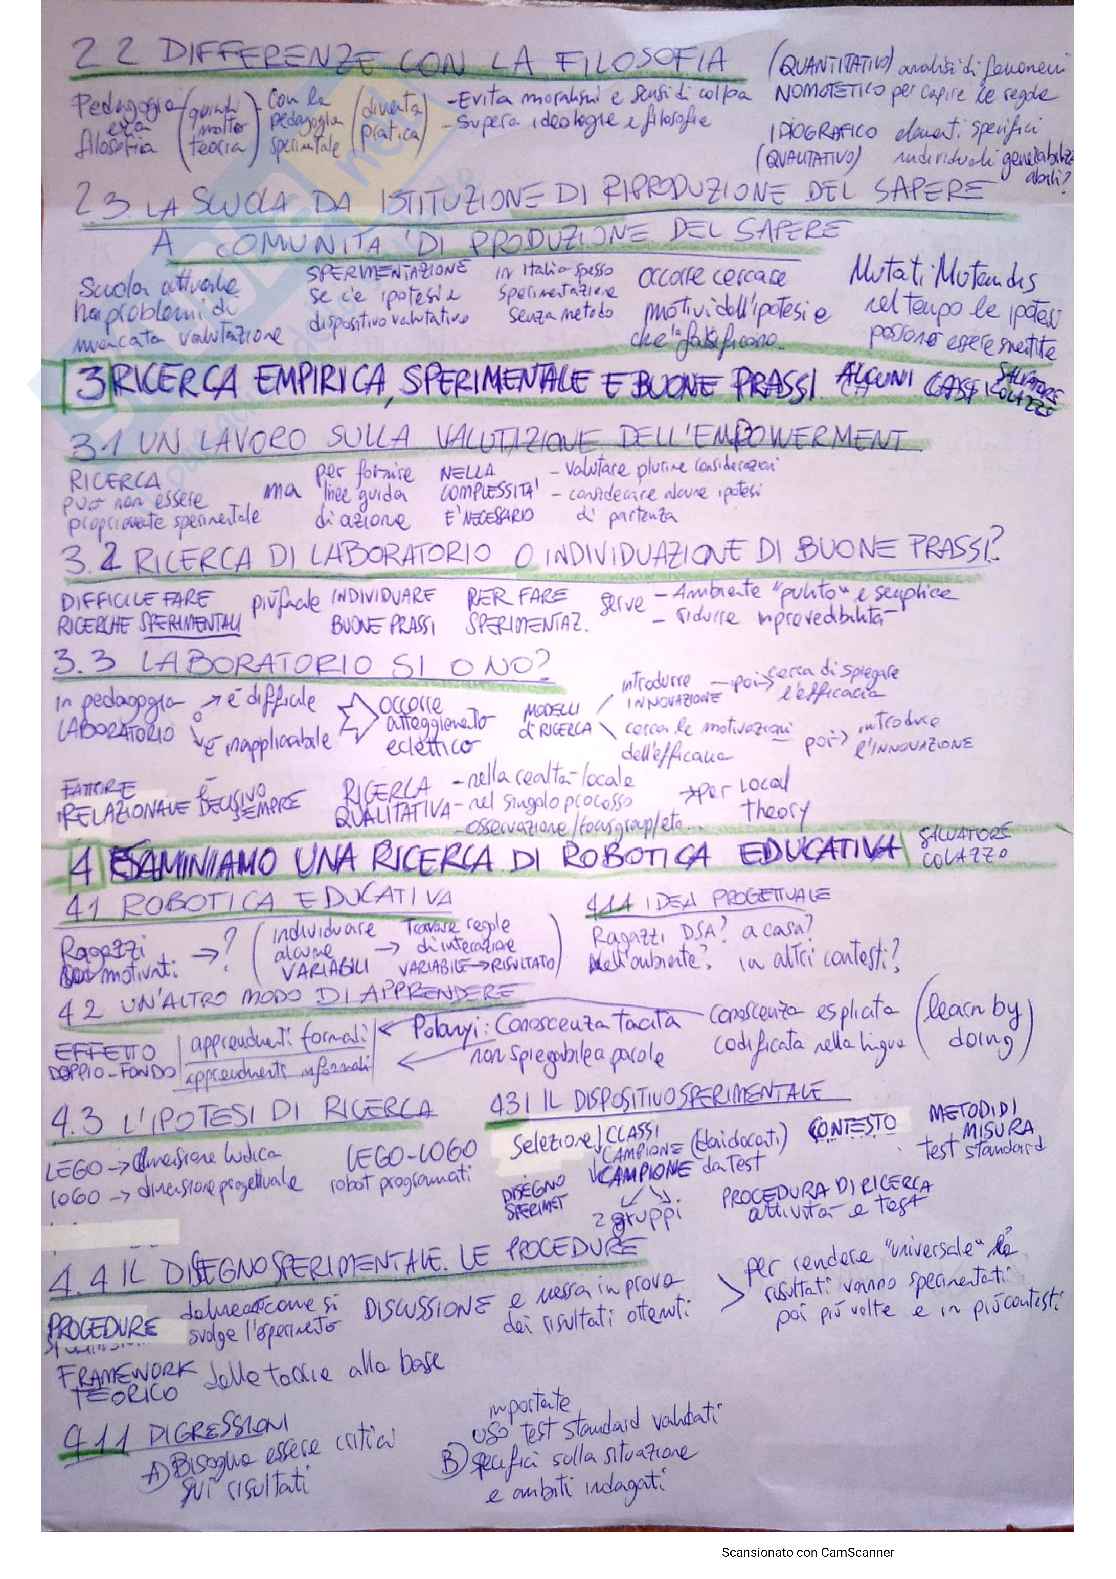 2.2 DIFFERENZE CON LA FILOSOFIA
Pedagogia era filosofia (quindi molto teoria) con la pedagogia sperimentale (diventa pratica)
- Evita moralismi e sensi di colpa
- Supera ideologie e filosofie
(QUANTITATIVO) analisi di fenomeni
NOMOTETICO per capire le regole
IDIOGRAFICO elementi specifici
(QUALITATIVO) individuali
2.3 LA SCUOLA DA ISTITUZIONE DI RIPRODUZIONE DEL SAPERE
A COMUNITA' DI PRODUZIONE DEL SAPERE
Scuola attuale
ha problemi di
mancata valutazione
SPERIMENTAZIONE
se c'è ipotesi e
dispositivo valutativo
in Italia spesso
sperimentazione
senza metodo
occorre cercare
motivi dell'ipotesi e
che la falsificano..
Mutatis Mutandis
nel tempo le ipotesi
possono essere smentite
3 RICERCA EMPIRICA, SPERIMENTALE E BUONE PRASSI ALCUNI CASI SALVATORE COLAZZO
3.1 UN LAVORO SULLA VALUTAZIONE DELL'EMPOWERMENT
RICERCA
può non essere
propriamente sperimentale
ma
per fornire
linee guida
di azione
NELLA
COMPLESSITA'
E' NECESSARIO
- valutare plurime considerazioni
- considerare alcune ipotesi
di partenza
3.2 RICERCA DI LABORATORIO O INDIVIDUAZIONE DI BUONE PRASSI?
DIFFICILE FARE
RICERCHE SPERIMENTALI
più facile INDIVIDUARE
BUONE PRASSI
PER FARE
SPERIMENTAZ.
serve - Ambiente "pulito" e semplice
- ridurre imprevedibilità
3.3 LABORATORIO SI O NO?
in pedagogia
LABORATORIO
→ è difficile
o
↘ è inapplicabile
occorre
atteggiamento
eclettico
MODELLI
di RICERCA
introdurre
INNOVAZIONE
— poi → cerca di spiegare
l'efficacia
cerca le motivazioni
dell'efficacia
— poi → introduce
l'INNOVAZIONE
FATTORE
RELAZIONALE È DECISIVO
SEMPRE
RICERCA
QUALITATIVA
- nella realtà locale
- nel singolo processo
- osservazione/focus group/etc...
→ per Local
theory
4 ESAMINIAMO UNA RICERCA DI ROBOTICA EDUCATIVA SALVATORE COLAZZO
4.1 ROBOTICA EDUCATIVA
Ragazzi
motivati
→ ?
?
(individuare
alcune
VARIABILI
→
Trovare regole
di interazione
VARIABILE → RISULTATO)
4.1.1 IDEA PROGETTUALE
Ragazzi DSA? a casa?
Nell'ambiente? in altri contesti?
4.2 UN'ALTRO MODO DI APPRENDERE
EFFETTO
DOPPIO-FONDO
apprendimenti formali
apprendimenti informali
Polanyi: Conoscenza tacita
non spiegabile a parole
conoscenza esplicita
codificata nella lingua
(learn by
doing)
4.3 L'IPOTESI DI RICERCA
LEGO → dimensione ludica
LOGO → dimensione progettuale
LEGO-LOGO
robot programmati
4.3.1 IL DISPOSITIVO SPERIMENTALE
Selezione CLASSI
CAMPIONE (dai docenti)
CAMPIONE da TEST
DISEGNO
SPERIMET
2 gruppi
CONTESTO
METODI DI
MISURA
test standard
PROCEDURA DI RICERCA
attività e test
4.4 IL DISEGNO SPERIMENTALE. LE PROCEDURE
PROCEDURE
delineare come si
svolge l'esperimento
DISCUSSIONE e messa in prova
dei risultati ottenuti
per rendere "universale" i
risultati vanno sperimentati
poi più volte e in più contesti
FRAMEWORK
TEORICO
delle teorie alla base
4.1.1 DIGRESSIONI
A) Bisogna essere critici
sui risultati
importante
B) uso test standard validati
specifici sulla situazione
e ambiti indagati
Scansionato con CamScanner